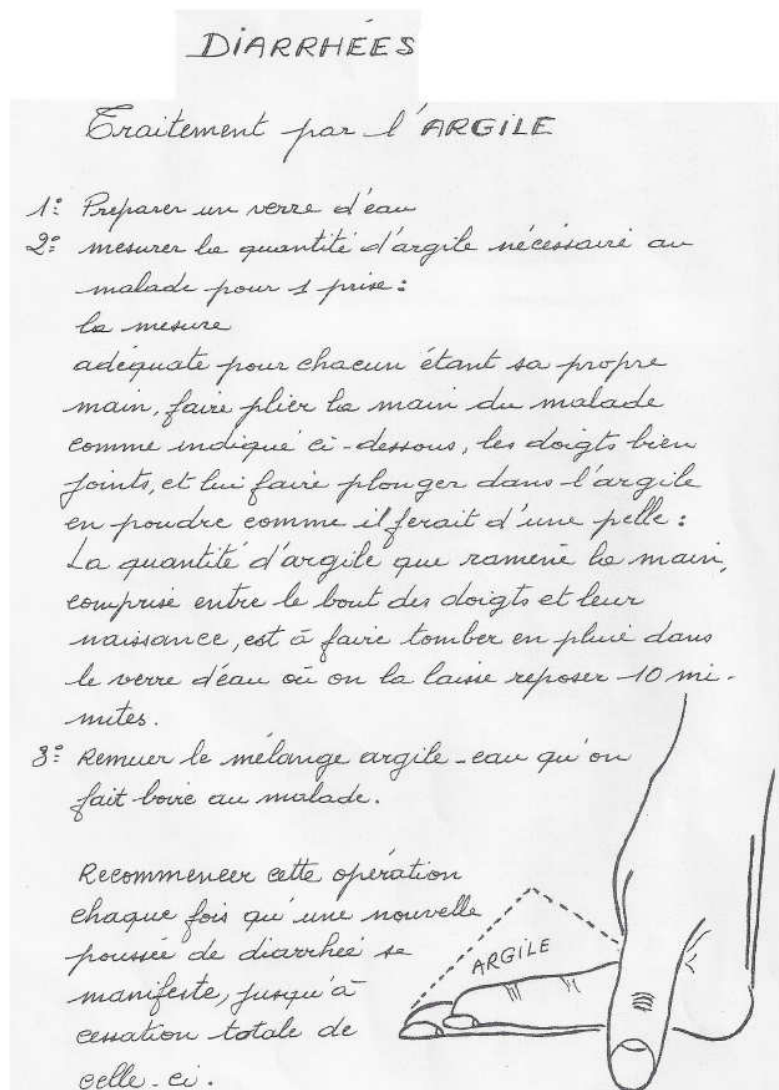 DIARRHÉES
Traitement par l'ARGILE
1º: Préparer un verre d'eau
2º: mesurer la quantité d'argile nécessaire au
malade pour 1 prise :
la mesure
adéquate pour chacun étant sa propre
main, faire plier la main du malade
comme indiqué ci-dessous, les doigts bien
joints, et lui faire plonger dans l'argile
en poudre comme il ferait d'une pelle :
La quantité d'argile que ramène la main,
comprise entre le bout des doigts et leur
naissance, est à faire tomber en pluie dans
le verre d'eau où on la laisse reposer 10 mi-
nutes.
3º: Remuer le mélange argile-eau qu'on
fait boire au malade.
Recommencer cette opération
chaque fois qu'une nouvelle
poussée de diarrhée se
manifeste, jusqu'à
cessation totale de
celle-ci.
ARGILE